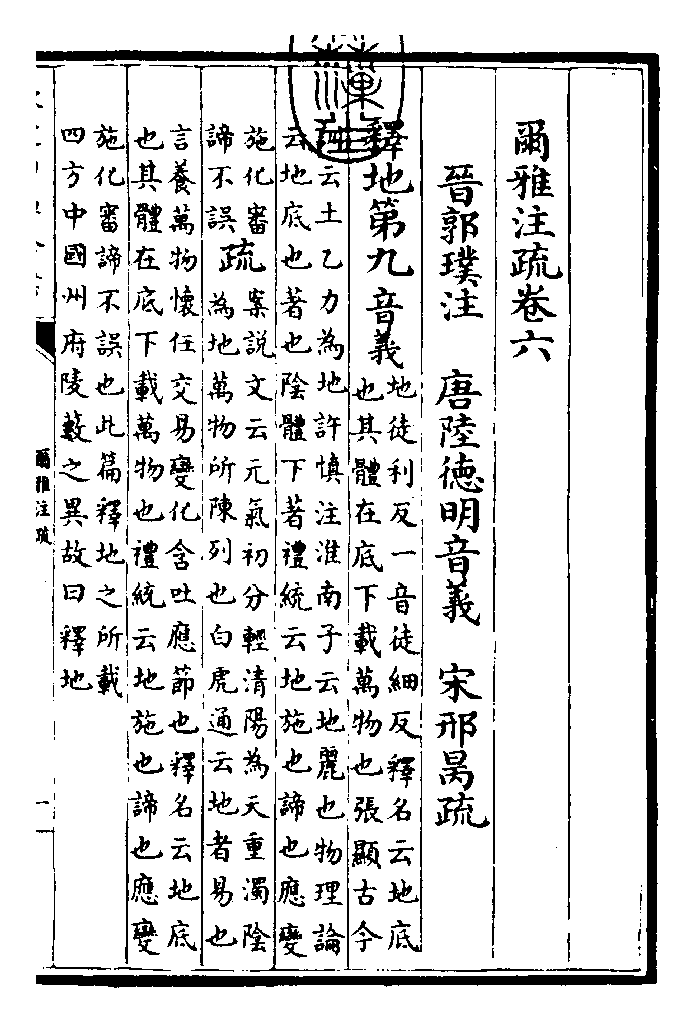 爾雅注疏卷六
晉郭璞注 唐陸德明音義 宋邢昺疏
釋地第九音義
地徒利反一音徒細反釋名云地底
也其體在底下載萬物也張顯古今
云土乙力為地許慎注淮南子云地麗也物理論
云地底也著也陰體下著禮統云地施也諦也應變
施化審
諦不誤
疏
案說文云元氣初分輕清陽為天重濁陰
為地萬物所陳列也白虎通云地者易也
言養萬物懷任交易變化含吐應節也釋名云地底
也其體在底下載萬物也禮統云地施也諦也應變
施化審諦不誤也此篇釋地之所載
四方中國州府陵藪之異故曰釋地
爾雅注疏
一